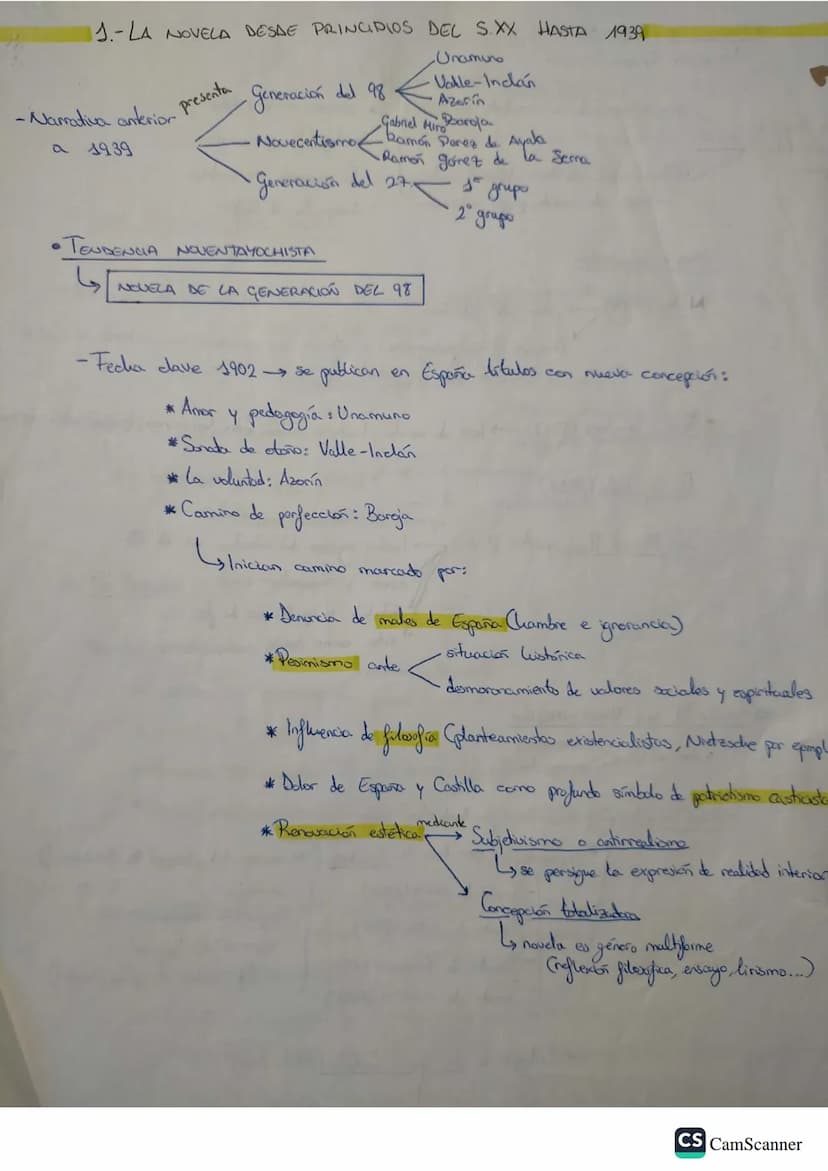 1.- LA NOVELA DESDE PRINCIPIOS DEL S.XX HASTA 1939
- Narrativa anterior a 1939
presenta
Generación del 98
Unamuno
Valle-Inclán
Azorín
Baroja
Novecentismo
Gabriel Miró
Ramón Perez de Ayala
Ramón gómez de la Serna
Generación del 27
1er grupo
2º grupo
• TENDENCIA NOVENTAYOCHISTA
↳ NOVELA DE LA GENERACIÓN DEL 98
- Fecha clave 1902 → se publican en España títulos con nueva concepción:
* Amor y pedagogía: Unamuno
* Sonata de otoño: Valle-Inclán
* La voluntad: Azorín
* Camino de perfección: Baroja
↳ Inician camino marcado por:
* Denuncia de males de España (hambre e ignorancia)
* Pesimismo ante
situación histórica
desmoronamiento de valores sociales y espirituales
* Influencia de filosofía (planteamientos existencialistas, Nietzsche por ejempl
* Dolor de España y Castilla como profundo símbolo de patriotismo casticista
* Renovación estética
mediante
Subjetivismo o antirrealismo
↳ se persigue la expresión de realidad interior
Concepción totalizadora
↳ novela es género multiforme
(reflexión filosófica, ensayo, lirismo...)
CS CamScanner